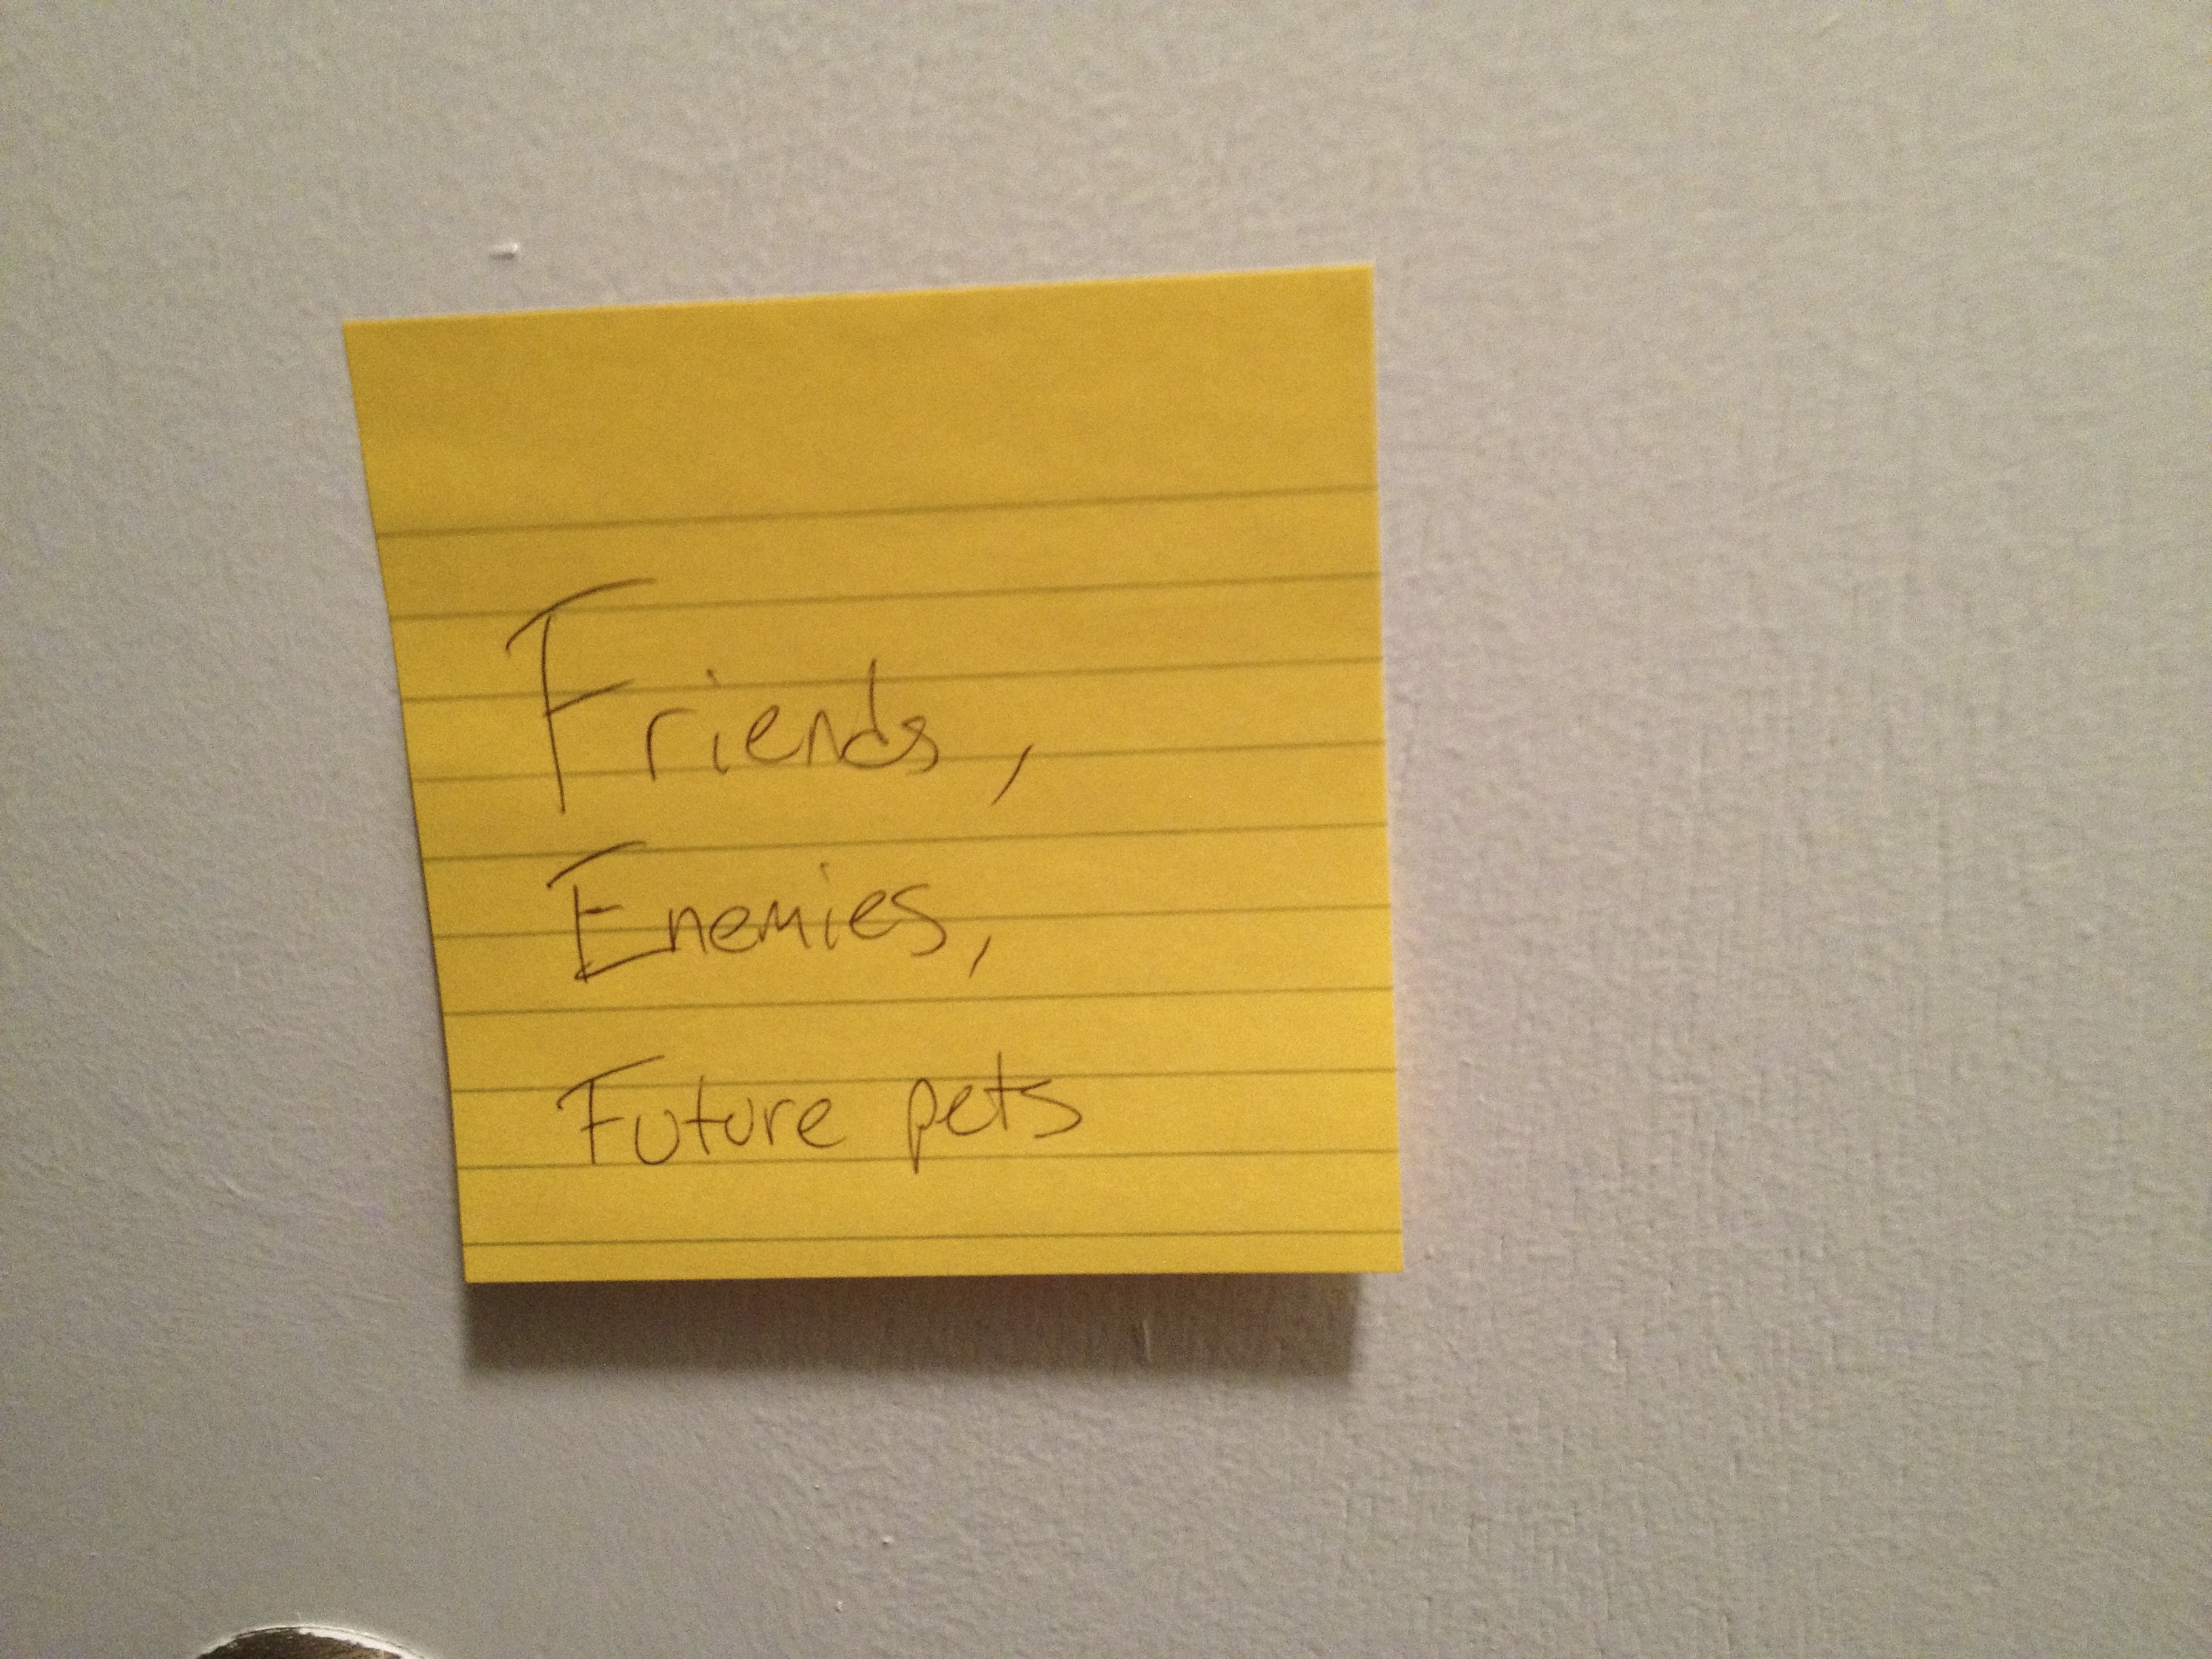 Friends,
Enemies,
Future pets